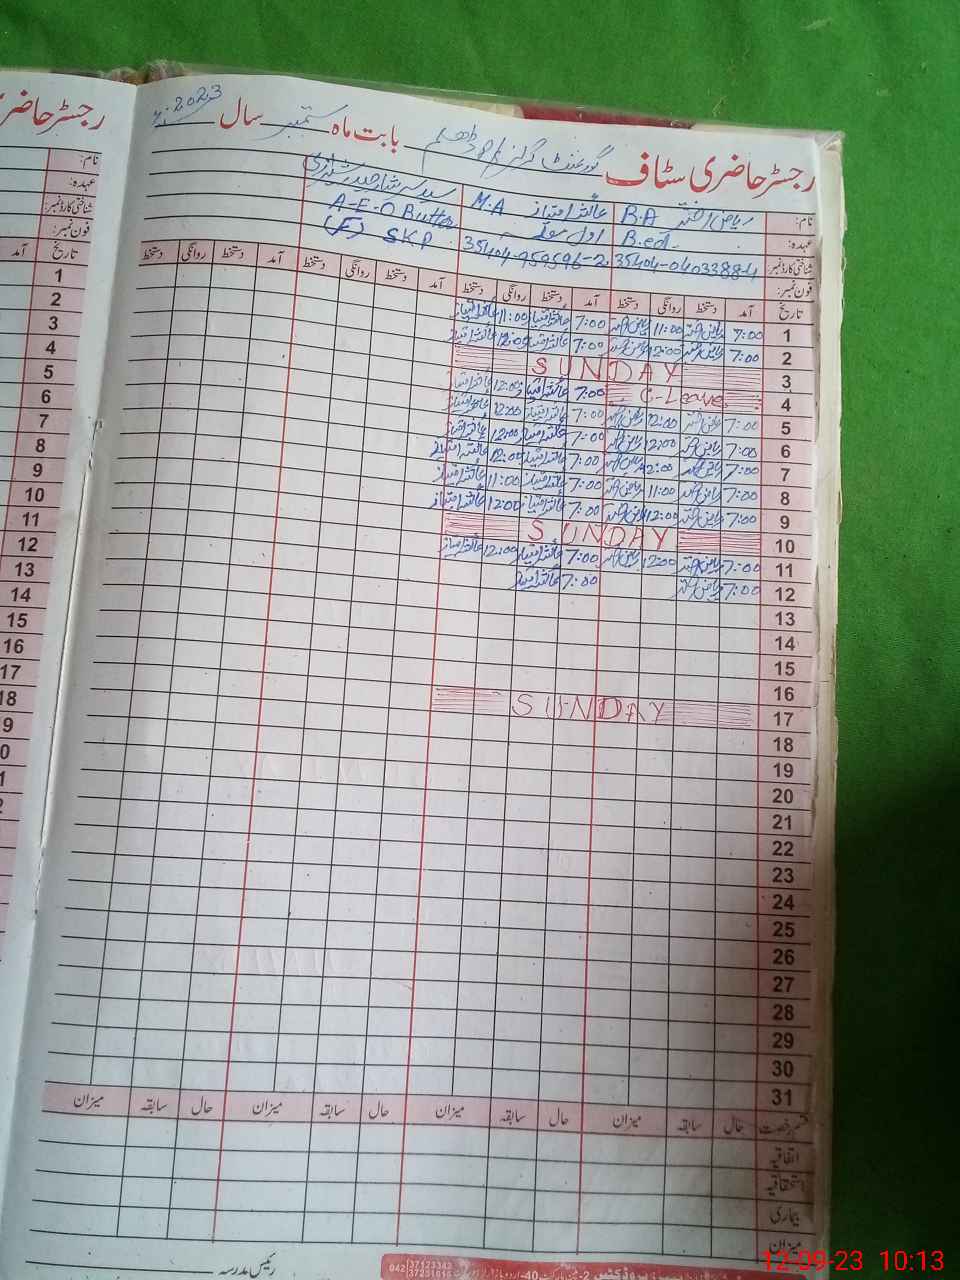 رجسٹر حاضری سٹاف گورنمنٹ گرلز بابت ماہ ستمبر سال 2023ء
رجسٹر حاضری
نام: ریاض اختر B.A عائشہ امتیاز M.A
عہدہ: B.ed. اول معلمہ A-E-O Butter
شناختی کارڈ نمبر: 35404-0403388-4 SKP (F)
فون نمبر:
تاریخ آمد دستخط روانگی دستخط آمد دستخط روانگی دستخط آمد دستخط روانگی دستخط آمد دستخط روانگی دستخط
1 7:00 ریاض اختر 11:00 ریاض اختر 7:00 عائشہ امتیاز 11:00 عائشہ امتیاز
2 7:00 ریاض اختر 12:00 ریاض اختر 7:00 عائشہ امتیاز 12:00 عائشہ امتیاز
3 SUNDAY
4 C-Leave 7:00 عائشہ امتیاز 12:00 عائشہ امتیاز
5 7:00 ریاض اختر 12:00 ریاض اختر 7:00 عائشہ امتیاز 12:00 عائشہ امتیاز
6 7:00 ریاض اختر 12:00 ریاض اختر 7:00 عائشہ امتیاز 12:00 عائشہ امتیاز
7 7:00 ریاض اختر 12:00 ریاض اختر 7:00 عائشہ امتیاز 12:00 عائشہ امتیاز
8 7:00 ریاض اختر 11:00 ریاض اختر 7:00 عائشہ امتیاز 11:00 عائشہ امتیاز
9 7:00 ریاض اختر 12:00 ریاض اختر 7:00 عائشہ امتیاز 12:00 عائشہ امتیاز
10 SUNDAY
11 7:00 ریاض اختر 12:00 ریاض اختر 7:00 عائشہ امتیاز 12:00 عائشہ امتیاز
12 7:00 ریاض اختر 7:00 عائشہ امتیاز
13
14
15
16
17 SUNDAY
18
19
20
21
22
23
24
25
26
27
28
29
30
31
قسم رخصت حال سابقہ میزان حال سابقہ میزان حال سابقہ میزان حال سابقہ میزان
اتفاقیہ
استحقاقیہ
بیماری
میزان
رئیس مدرسہ
042 37123342
37231616
نام:
عہدہ:
شناختی کارڈ نمبر:
فون نمبر:
تاریخ آمد
1
2
3
4
5
6
7
8
9
10
11
12
13
14
15
16
17
18
12-09-23 10:13